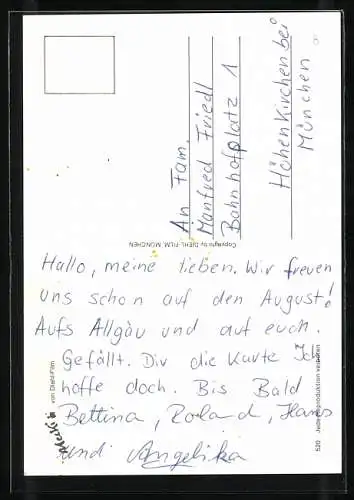 An Fam.
Manfred Friedl
Bahnhofplatz 1
Höhenkirchen bei
München
Copyright by DIEHL FILM, MÜNCHEN
Hallo, meine lieben. Wir freuen
uns schon auf den August!
Aufs Allgäu und auf euch.
Gefällt. Dir die Karte Ich
hoffe doch. Bis Bald
Bettina, Roland, Hans
und Angelika
von Diehl-Film
520 Jede Reproduktion verboten